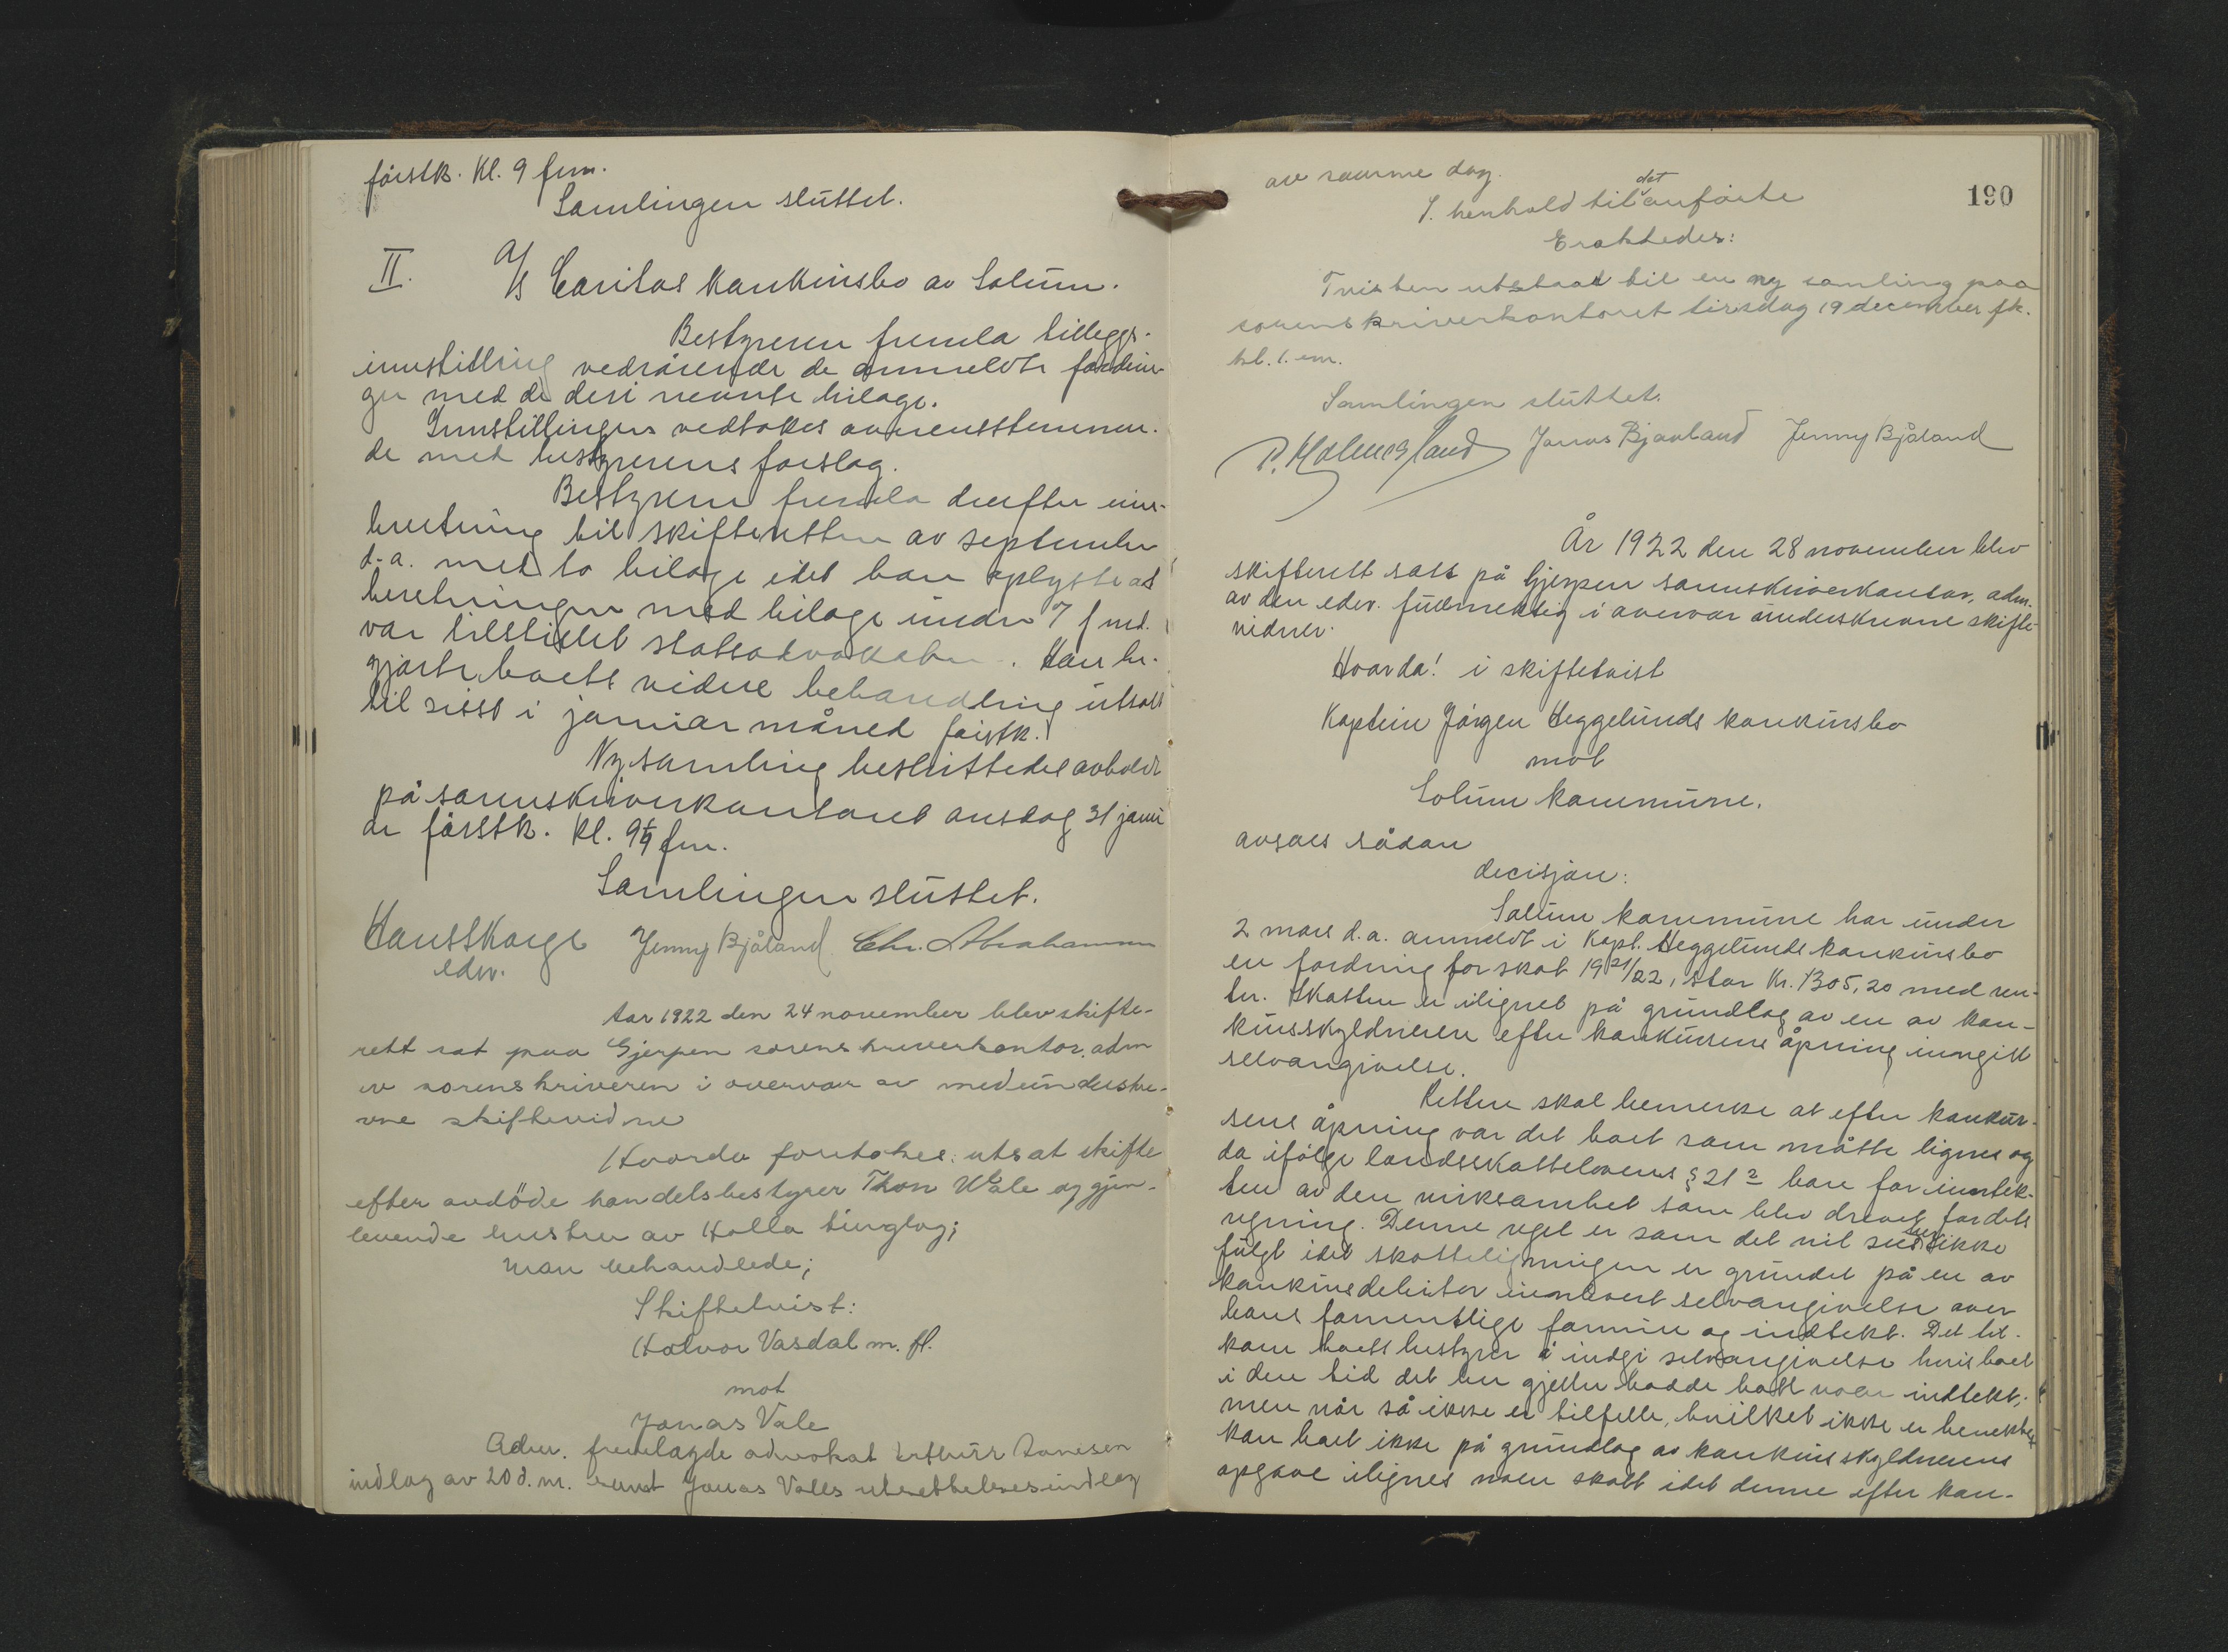 førstk. Kl. 9 fm.
Samlingen sluttet.
II. A/S Caritas konkursbo av Solum.
Bestyreren fremla tilleggs-
innstilling vedrørende de anmeldte fordrin-
ger med de deri nevnte bilage.
Innstillingen vedtokes overensstemmen-
de med bestyrerens forslag.
Bestyreren fremla derefter inn-
beretning til skifteretten av september
d.a. med to bilage idet han oplyste at
beretningen med bilage under 7 f md.
var tilstillet statsadvokaten. Han be-
gjærte boets videre behandling utsatt
til sisst i januar måned førstk.
Ny samling besluttedes avholdt
på sorenskriverkontoret onsdag 31 janu
ar førstk. Kl. 9½ fm.
Samlingen sluttet.
Hans Skorge Jenny Bjåland Chr. Abrahamsen
edsv.
Aar 1922 den 24 november blev skifte-
rett sat paa Gjerpen sorenskriverkontor, adm
av sorenskriveren i overvær av medunderskre-
vne skiftevidne
Hvorda foretokes: utsat skifte
efter avdöde handelsbestyrer Thon Wale og gjen-
levende hustru av Holla tinglag;
Man behandlede;
Skiftetvist:
Halvor Vasdal m. fl.
mot
Jonas Vale
Adm. fremlagde advokat Arthur Danisen
indlag av 20 d.m. samt Jonas Vales utsettelsesindlæg
190
av samme dag.
det
I henhold til anførte
Eraktedes:
Tvisten utstaar til en ny samling paa
sorenskriverkontoret tirsdag 19 december fk.
kl. 1. em.
Samlingen sluttet.
P. Holmesland Jonas Bjaaland Jenny Bjåland
År 1922 den 28 november blev
skifterett satt på Gjerpen sorenskriverkontor, adm.
av den edsv. fullmektig i overvær underskrevne skifte-
vidner.
Hvorda! i skiftetvist
Kaptein Jørgen Heggelunds konkursbo
mot
Solum kommune.
avsaes sådan
decisjon:
Solum kommune har under
2 mars d.a. anmeldt i Kapt. Heggelunds konkursbo
en fordring for skat 1921/22, stor Kr. 1305,20 med ren-
ter. Skatten er ilignet på grundlag av en av kon-
kursskyldneren efter konkursens åpning inngitt
selvangivelse.
Retten skal bemerke at efter konkur-
sens åpning var det boet som måtte lignes og
da ifølge landsskattelovens § 21 2 bare for inntek-
ten av den virksomhet som blev drevet for dets
regning. Denne regel er som det vil sees her ikke
fulgt idet skatteligningen er grundet på en av
konkursdebitor innlevert selvangivelse over
hans formentlige formue og indtekt. Det til-
kom boets bestyrer å indgi selvangivelse hvis boet
i den tid det her gjeller hadde hatt noen indtekt,
men når så ikke er tilfelle, hvilket ikke er benektet
kan boet ikke på grundlag av konkursskyldnerens
opgave ilignes noen skatt idet denne efter kon-